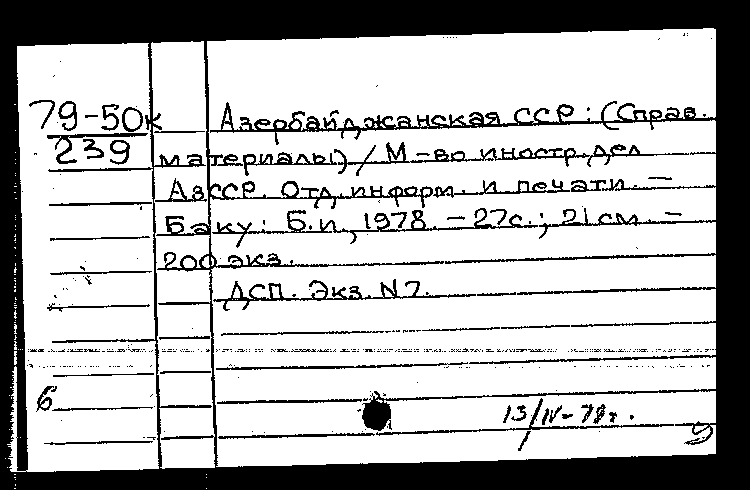 79-50к
239
Азербайджанская ССР: (Справ.
материалы) / М-во иностр. дел
АзССР. Отд. информ. и печати. —
Баку: Б.и., 1978. — 27с.; 21 см. —
200 экз.
ДСП. Экз. N7.
6
13/IV-79г.